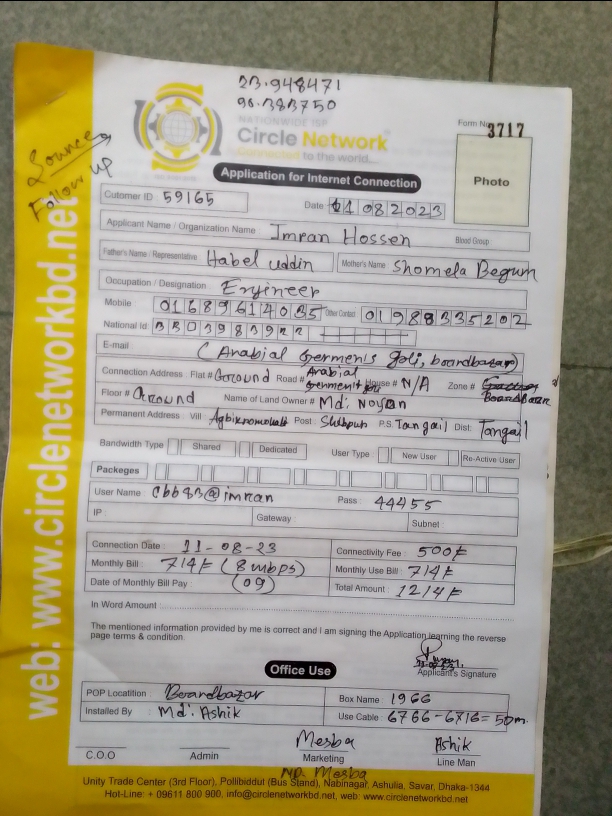 23.948471
90.383750
NATIONWIDE ISP
Circle Network
Connecting to the world...
Form No 3717
Sources
Follow up
Application for Internet Connection
Photo
Cutomer ID 59165
Date : 11 08 2023
Applicant Name / Organization Name : Imran Hossen
Blood Group
Father's Name / Representative Habel uddin
Mother's Name Shomela Begum
Occupation / Designation : Engineer
Mobile 01689614035 Other Contact 01988335202
National Id: 3303983922
E-mail
(Arabial Germents Goli, boardbazar)
Connection Address : Flat # Ground Road # Arabial Germent House # N/A Zone # BoardBazar
Floor # Ground Name of Land Owner # Md: Noyon
Permanent Address : Vill : Post : Shibpur P.S. Tangail Dist: Tangail
Bandwidth Type Shared Dedicated User Type New User Re-Active User
Packeges
User Name cbb83@imran Pass : 44455
IP Gateway Subnet
Connection Date : 11-08-23 Connectivity Fee : 500/=
Monthly Bill : 714/= (8 mbps) Monthly Use Bill : 714/=
Date of Monthly Bill Pay : (09) Total Amount : 1214/=
In Word Amount :
The mentioned information provided by me is correct and I am signing the Application learning the reverse
page terms & condition.
Applicant's Signature
Office Use
POP Locatition : Boardbazar Box Name : 1966
Installed By : Md: Ashik Use Cable : 6766-6716= 50m.
Mesba Ashik
C.O.O Admin Marketing Line Man
MD. Mesba
Unity Trade Center (3rd Floor), Pollibiddut (Bus Stand), Nabinagar, Ashulia, Savar, Dhaka-1344
Hot-Line: + 09611 800 900, info@circlenetworkbd.net, web: www.circlenetworkbd.net
web: www.circlenetworkbd.net